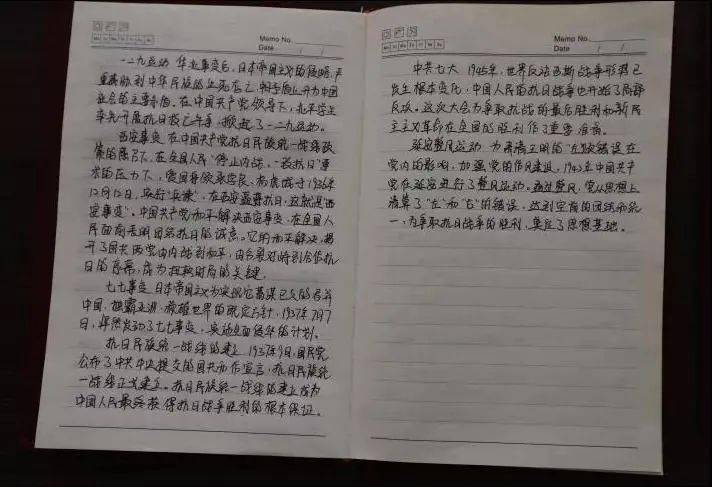 Memo No.
Date / /
一二九运动 华北事变后，日本帝国主义的侵略，严
重威胁到中华民族的生死存亡，矛盾上升为中国
社会的主要矛盾。在中国共产党领导下，北平学生
率先开展抗日救亡斗争，掀起了一二九运动。
西安事变 在中国共产党抗日民族统一战线政
策的感召下，在全国人民"停止内战，一致抗日"要
求的压力下，爱国将领张学良、杨虎城于1936年
12月12日，实行"兵谏"，在西安逼蒋抗日，这就是西
安事变。中国共产党和平解决西安事变，在全国人
民面前表明团结抗日的诚意。它的和平解决，揭
开了国共两党由内战到和平，由分裂对峙到合作抗
日的序幕，成为扭转时局的关键。
七七事变 日本帝国主义为实现它蓄谋已久的吞并
中国，独霸亚洲，称雄世界的既定方针，1937年7月7
日，悍然发动了七七事变，发动全面侵华的计划。
抗日民族统一战线的建立 1937年9月，国民党
公布了中共中央提交的国共合作宣言，抗日民族统
一战线正式建立。抗日民族统一战线的建立成为
中国人民最终获得抗日战争胜利的根本保证。
Memo No.
Date / /
中共七大 1945年，世界反法西斯战争形势已
发生根本变化，中国人民的抗日战争也开始了局部
反攻。这次大会为争取抗战的最后胜利和新民
主主义革命在全国的胜利作了重要准备。
延安整风运动 为肃清王明的"左"倾错误在
党内的影响，加强党的作风建设，1942年中国共产
党在延安进行了整风运动。通过整风，党从思想上
清算了"左"和"右"的错误，达到空前的团结和统
一，为争取抗日战争的胜利，奠定了思想基础。